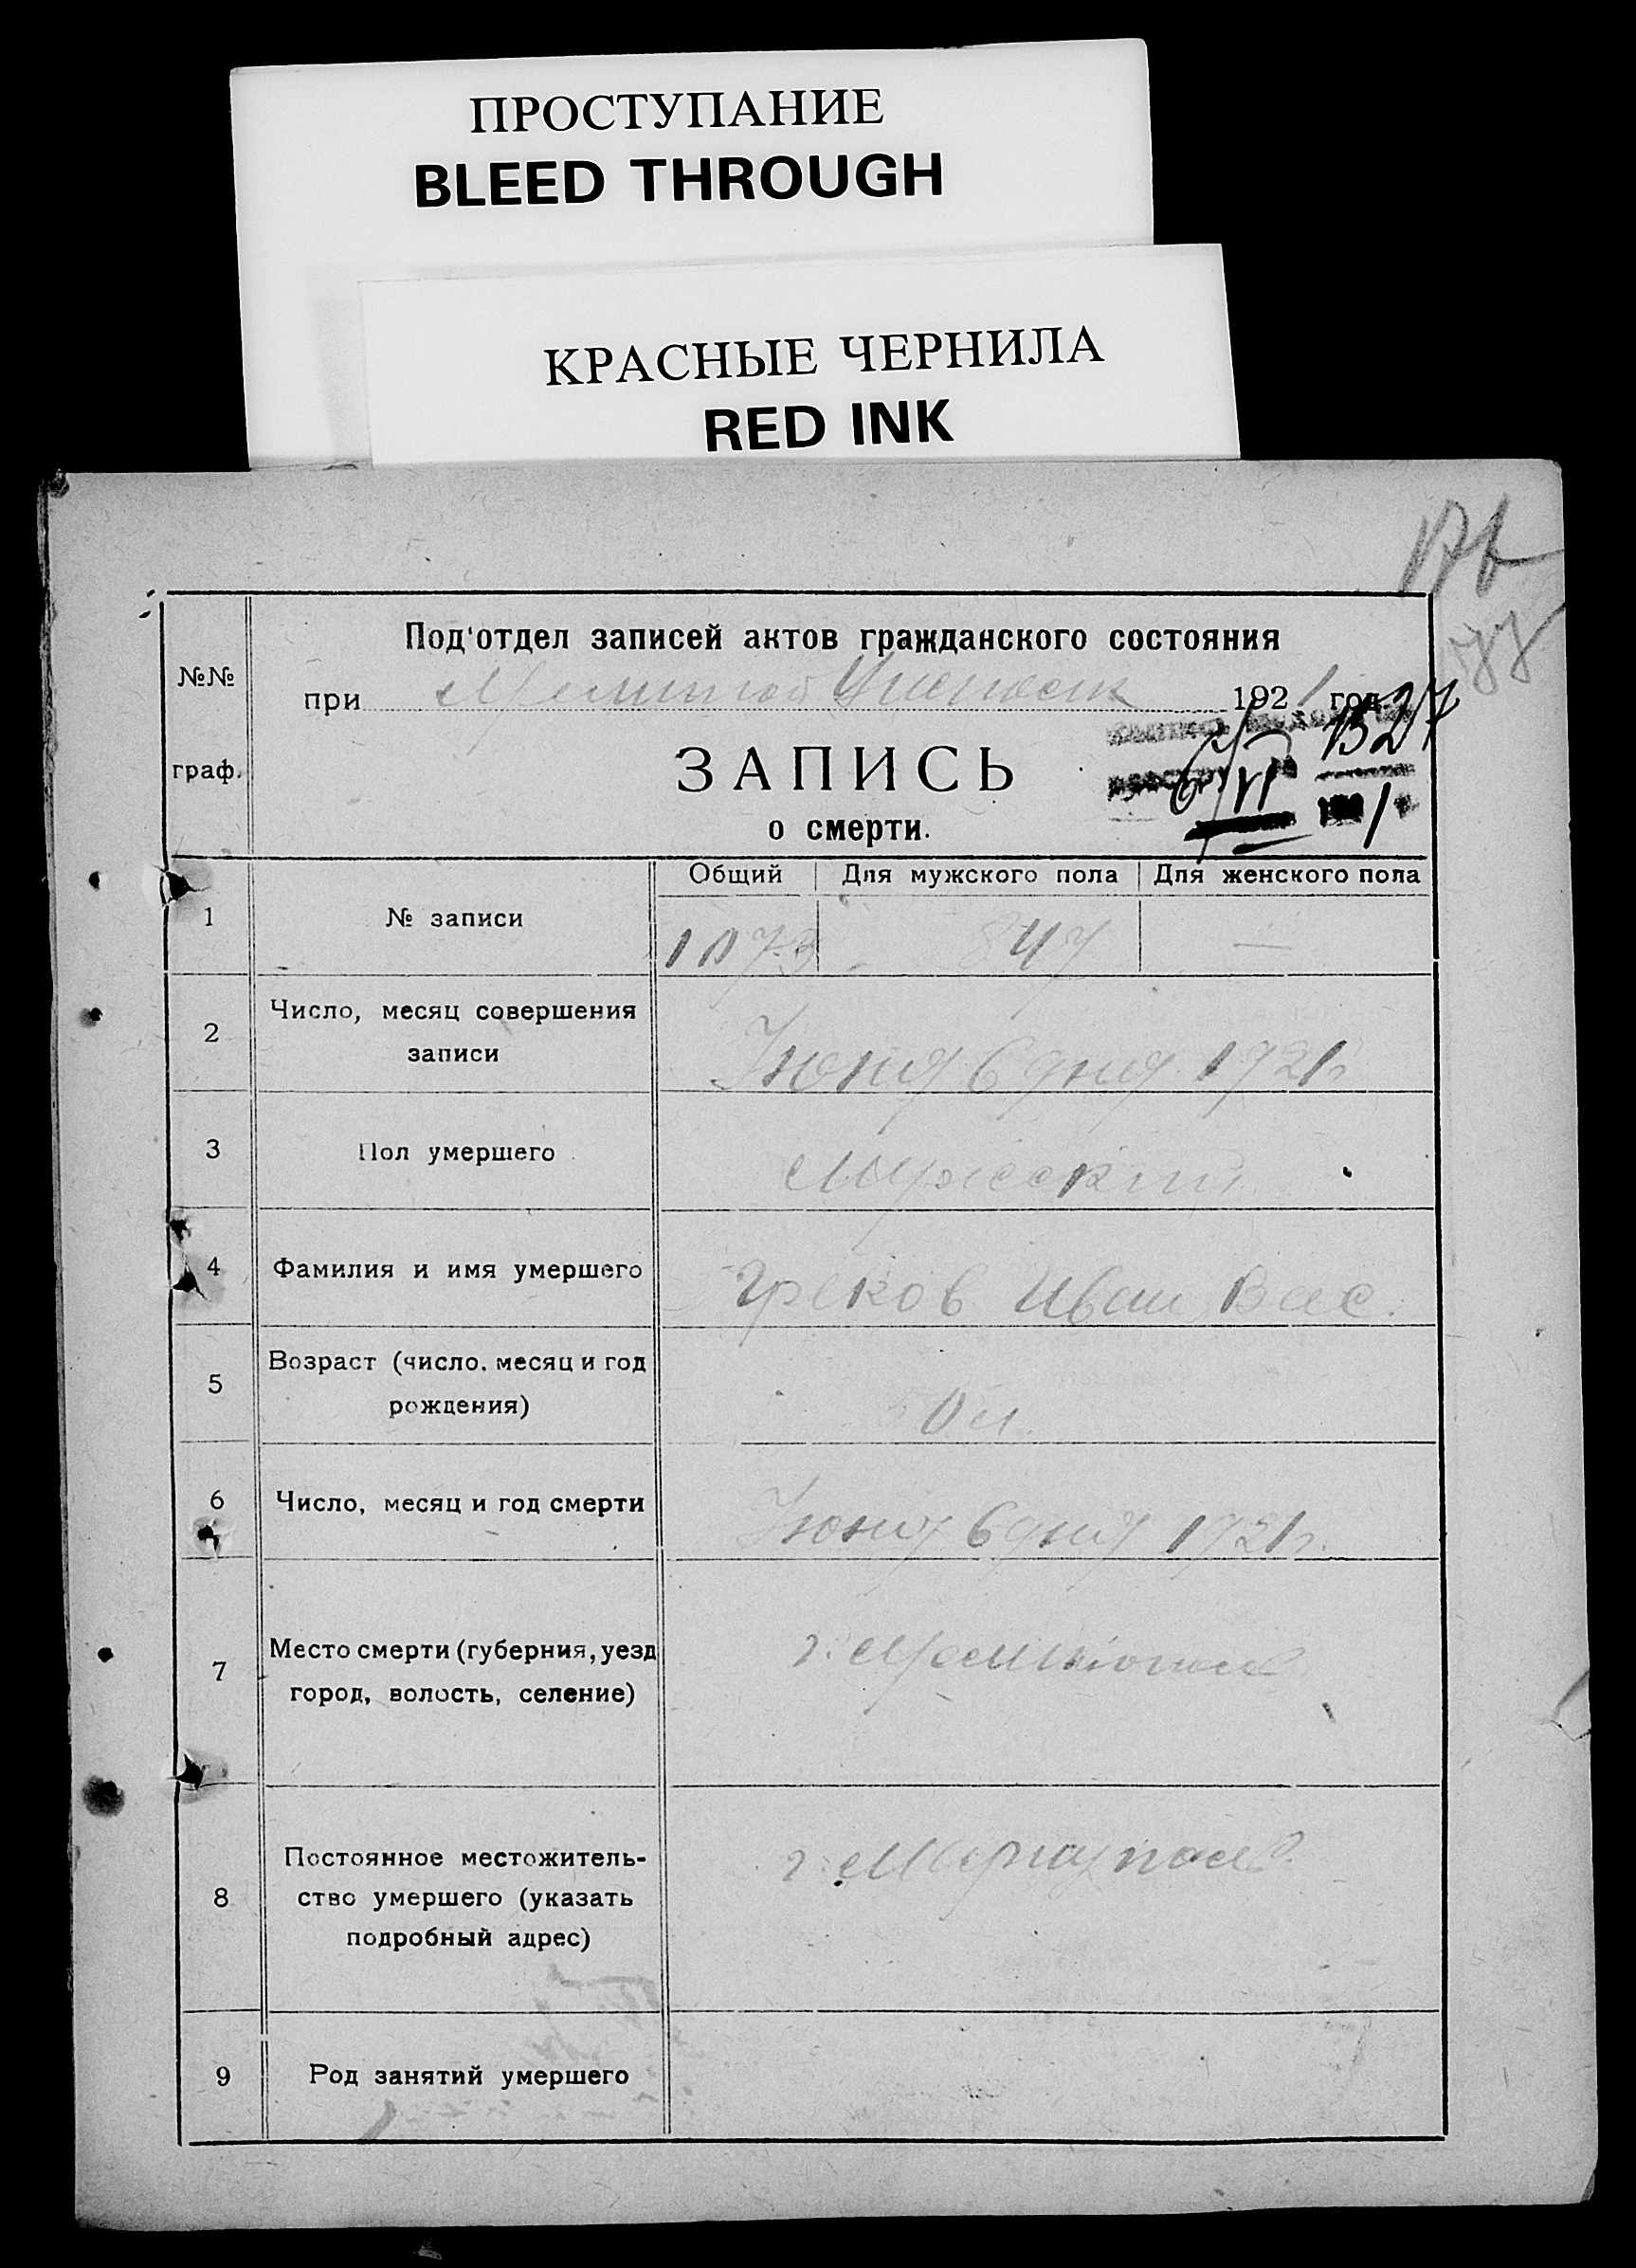 ПРОСТУПАНИЕ
BLEED THROUGH
КРАСНЫЕ ЧЕРНИЛА
RED INK
№№
граф.
Под'отдел записей актов гражданского состояния
при 1921 год.
ЗАПИСЬ
о смерти.
Общий Для мужского пола Для женского пола
1 № записи 1073 847 —
2 Число, месяц совершения
записи
Июня 6 дня 1921 г
3 Пол умершего Мужский
4 Фамилия и имя умершего Греков Иван Вас.
5 Возраст (число, месяц и год
рождения)
6 Число, месяц и год смерти Июня 6 дня 1921 г.
7 Место смерти (губерния, уезд
город, волость, селение)
г. Мелитополь
8 Постоянное местожитель-
ство умершего (указать
подробный адрес)
г. Мариуполь
9 Род занятий умершего